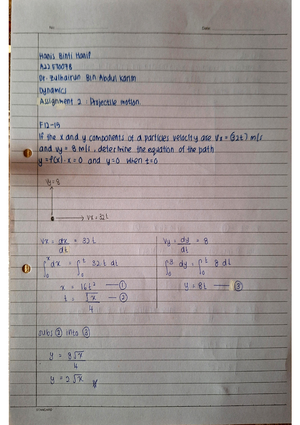 No:
Date:
Hanis Binti Hanif
Dr. Balhairun Bin Abdul Karim
Dynamics
Assignment 2 : Projectile motion.
F12-15
If the x and y components of a particles velocity are Vx = (32t) m/s
and vy = 8 m/s , determine the equation of the path
y = f(x) . x = 0 and y = 0 when t = 0
Vy = 8
Vx = 32t
Vx = dx/dt = 32t
∫₀ˣ dx = ∫₀ᵗ 32t dt
x = 16t² — ①
t = √x/4 — ②
Vy = dy/dt = 8
∫₀ʸ dy = ∫₀ᵗ 8 dt
y = 8t — ③
subs ② into ③
y = 8√x/4
y = 2√x